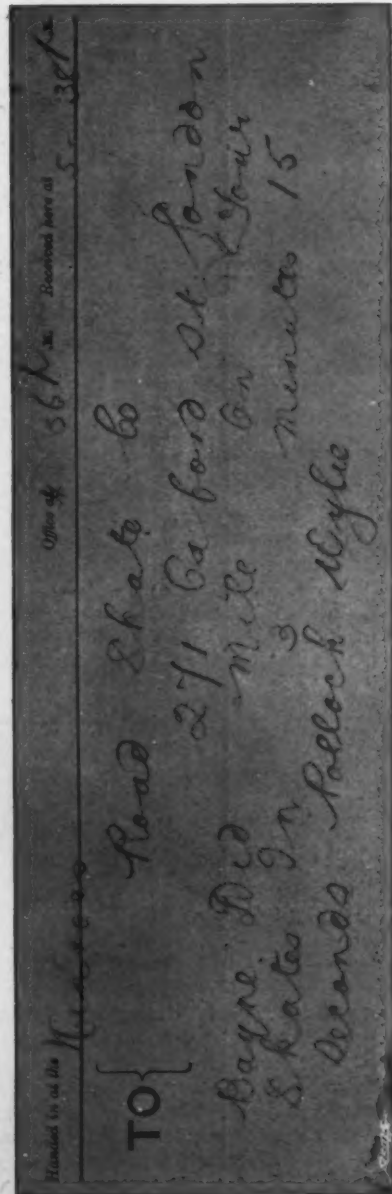 Handed in at the Office at 5 6 P.M. Received here at 5 - 38 P.M.
TO { Road Skate Co
271 Oxford St London
Bayne Did Mile On Your
Skates In 3 minutes 15
Seconds Pollock Wylie